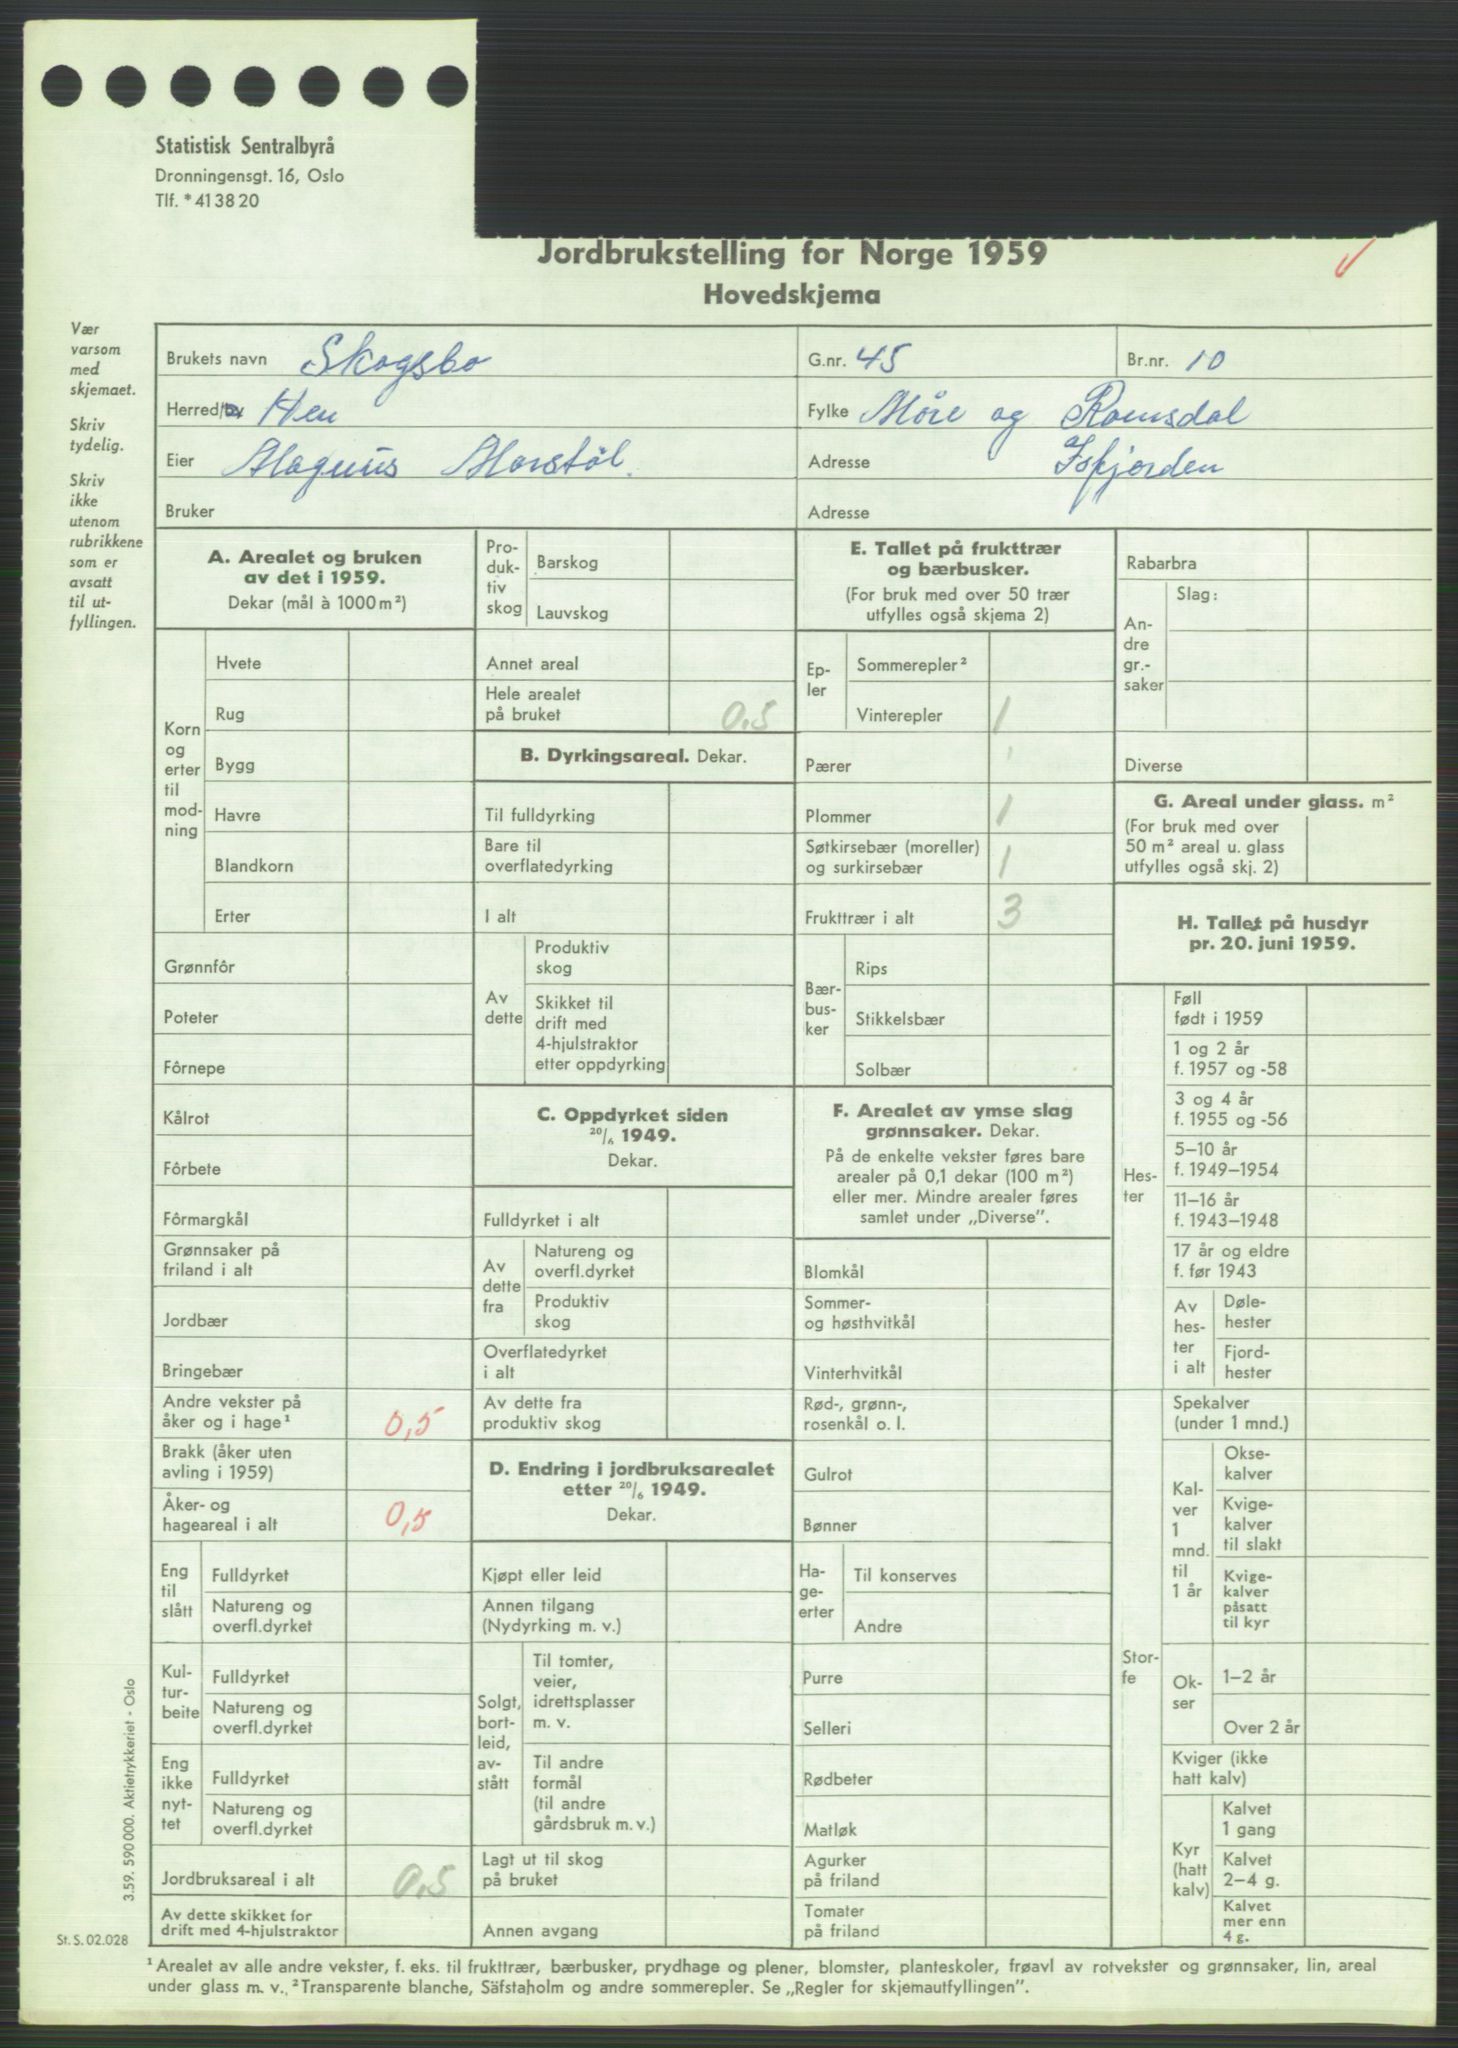 Statistisk Sentralbyrå
Dronningensgt. 16, Oslo
Tlf. * 41 38 20
Jordbrukstelling for Norge 1959
Hovedskjema
Vær
varsom
med
skjemaet.
Skriv
tydelig.
Skriv
ikke
utenom
rubrikkene
som er
avsatt
til ut-
fyllingen.
Brukets navn Skogsbo G.nr. 45 Br.nr. 10
Herred Hen Fylke Møre og Romsdal
Eier Magnus Morstøl. Adresse Isfjorden
Bruker Adresse
A. Arealet og bruken
av det i 1959.
Dekar (mål à 1000 m²)
Korn
og
erter
til
mod-
ning
Hvete
Rug
Bygg
Havre
Blandkorn
Erter
Grønnfôr
Poteter
Fôrnepe
Kålrot
Fôrbete
Fôrmargkål
Grønnsaker på
friland i alt
Jordbær
Bringebær
Andre vekster på
åker og i hage¹ 0,5
Brakk (åker uten
avling i 1959)
Åker- og
hageareal i alt 0,5
Eng
til
slått
Fulldyrket
Natureng og
overfl.dyrket
Kul-
tur-
beite
Fulldyrket
Natureng og
overfl.dyrket
Eng
ikke
nyt-
tet
Fulldyrket
Natureng og
overfl.dyrket
Jordbruksareal i alt 0,5
Av dette skikket for
drift med 4-hjulstraktor
Pro-
duk-
tiv
skog
Barskog
Lauvskog
Annet areal
Hele arealet
på bruket 0,5
B. Dyrkingsareal. Dekar.
Til fulldyrking
Bare til
overflatedyrking
I alt
Av
dette
Produktiv
skog
Skikket til
drift med
4-hjulstraktor
etter oppdyrking
C. Oppdyrket siden
20/6 1949.
Dekar.
Fulldyrket i alt
Av
dette
fra
Natureng og
overfl.dyrket
Produktiv
skog
Overflatedyrket
i alt
Av dette fra
produktiv skog
D. Endring i jordbruksarealet
etter 20/6 1949.
Dekar.
Kjøpt eller leid
Annen tilgang
(Nydyrking m. v.)
Solgt,
bort-
leid,
av-
stått
Til tomter,
veier,
idrettsplasser
m. v.
Til andre
formål
(til andre
gårdsbruk m. v.)
Lagt ut til skog
på bruket
Annen avgang
E. Tallet på frukttrær
og bærbusker.
(For bruk med over 50 trær
utfylles også skjema 2)
Ep-
ler
Sommerepler²
Vinterepler 1
Pærer
Plommer 1
Søtkirsebær (moreller)
og surkirsebær 1
Frukttrær i alt 3
Bær-
bus-
ker
Rips
Stikkelsbær
Solbær
F. Arealet av ymse slag
grønnsaker. Dekar.
På de enkelte vekster føres bare
arealer på 0,1 dekar (100 m²)
eller mer. Mindre arealer føres
samlet under „Diverse”.
Blomkål
Sommer-
og høsthvitkål
Vinterhvitkål
Rød-, grønn-,
rosenkål o. l.
Gulrot
Bønner
Ha-
ge-
erter
Til konserves
Andre
Purre
Selleri
Rødbeter
Matløk
Agurker
på friland
Tomater
på friland
Rabarbra
An-
dre
gr.-
saker
Slag:
Diverse
G. Areal under glass. m²
(For bruk med over
50 m² areal u. glass
utfylles også skj. 2)
H. Tallet på husdyr
pr. 20. juni 1959.
Hes-
ter
Føll
født i 1959
1 og 2 år
f. 1957 og -58
3 og 4 år
f. 1955 og -56
5–10 år
f. 1949–1954
11–16 år
f. 1943–1948
17 år og eldre
f. før 1943
Av
hes-
ter
i alt
Døle-
hester
Fjord-
hester
Stor-
fe
Spekalver
(under 1 mnd.)
Kal-
ver
1
mnd.
til
1 år
Okse-
kalver
Kvige-
kalver
til slakt
Kvige-
kalver
påsatt
til kyr
Ok-
ser
1–2 år
Over 2 år
Kviger (ikke
hatt kalv)
Kyr
(hatt
kalv)
Kalvet
1 gang
Kalvet
2–4 g.
Kalvet
mer enn
4 g.
3.59. 590 000. Aktietrykkeriet - Oslo
St. S. 02.028
¹ Arealet av alle andre vekster, f. eks. til frukttrær, bærbusker, prydhage og plener, blomster, planteskoler, frøavl av rotvekster og grønnsaker, lin, areal
under glass m. v. ² Transparente blanche, Säfstaholm og andre sommerepler. Se „Regler for skjemautfyllingen”.